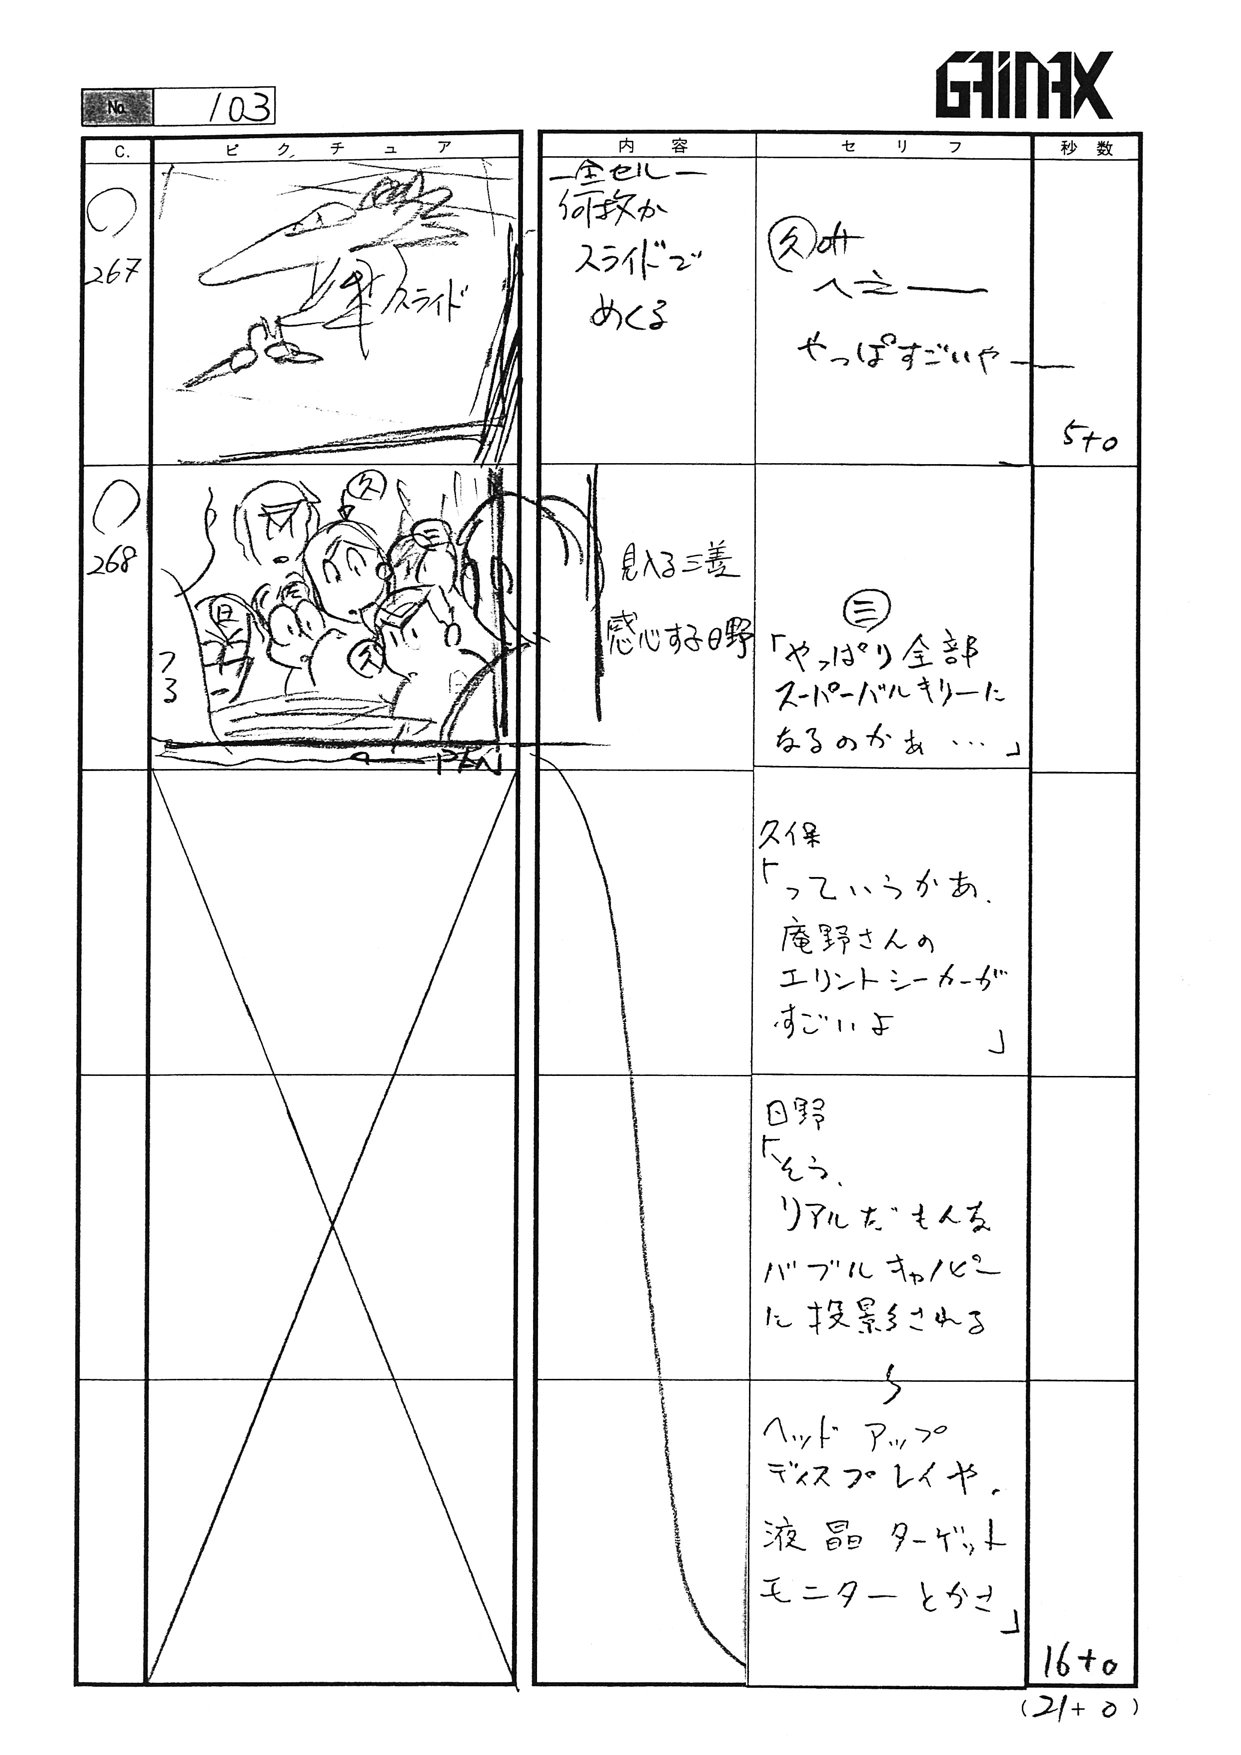 GAINAX
No. 103
C. ピクチュア 内容 セリフ 秒数
267
スライド
全セル
何枚か
スライドで
めくる
久 off
へえ——
やっぱすごいや——
5+0
268
久
三
日
久
PAN
見入る三善
感心する日野
三
「やっぱり全部
スーパーバルキリーに
なるのかぁ…」
久保
「っていうかあ、
庵野さんの
エリントシーカーが
すごいよ
」
日野
「そう、
リアルだもんな
バブルキャノピー
に投影される
ヘッドアップ
ディスプレイや、
液晶ターゲット
モニターとかさ」
16+0
(21+0)